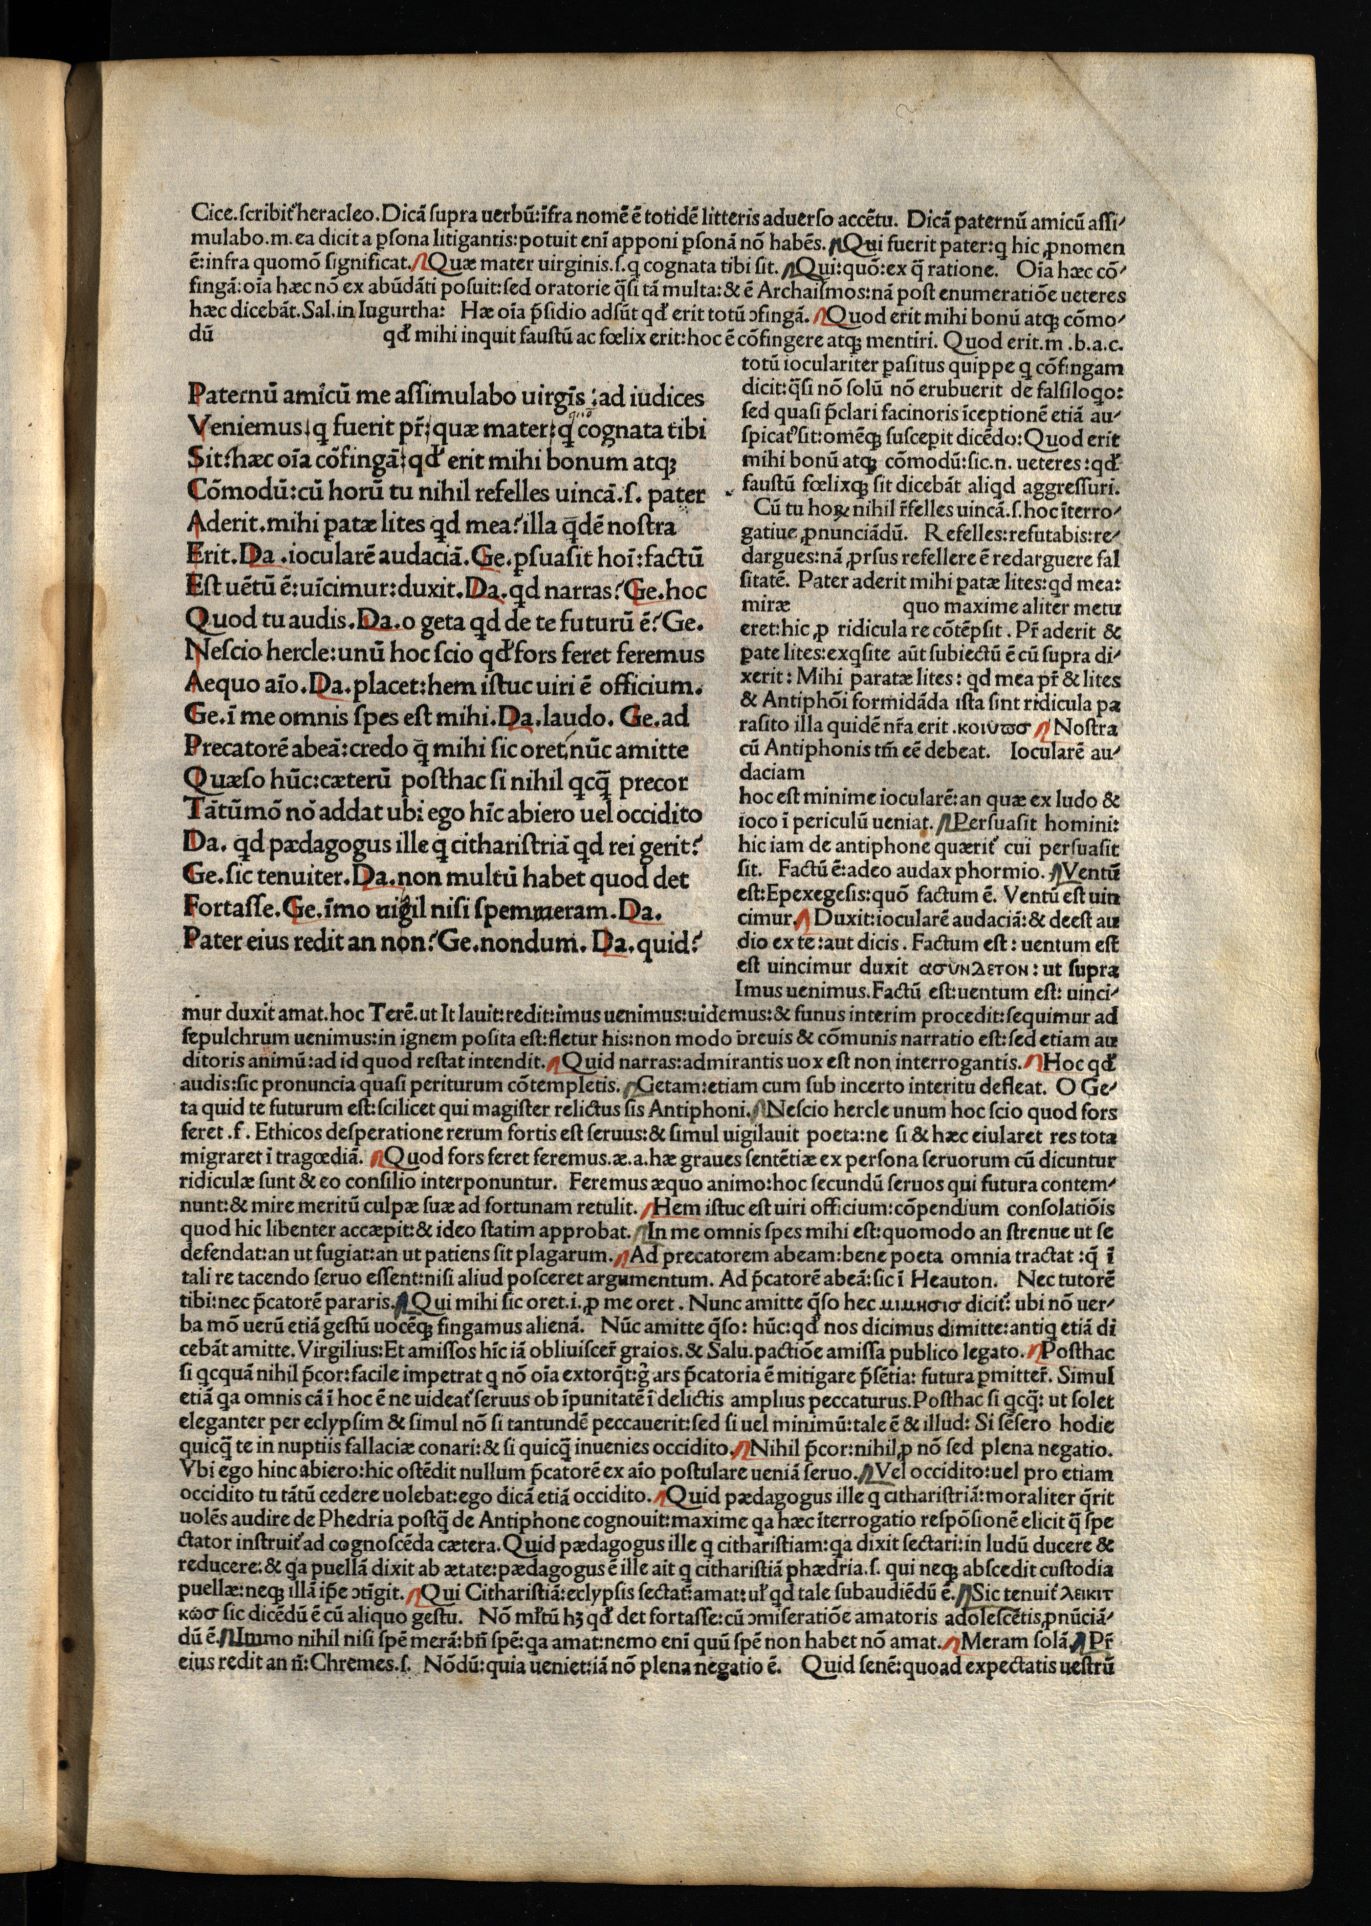 Cice.scribit᷑ heracleo.Dicã supra uerbũ:ĩfra nomẽ ẽ totidẽ litteris aduerso accẽtu. Dicã paternũ amicũ assi/
mulabo.m.ea dicit a ꝑsona litigantis:potuit eni᷑ apponi ꝑsonã nõ habẽs. Qui fuerit pater:q hic ꝓnomen
ẽ:infra quomõ significat. Quæ mater uirginis.ſ.q cognata tibi sit. Qui:quõ:ex q̃ ratione. Oĩa hæc cõ/
fingã:oĩa hæc nõ ex abũdãti posuit:sed oratorie q̃si tã multa:& ẽ Archaismos:nã post enumeratiõe ueteres
hæc dicebãt.Sal.in Iugurtha: Hæ oĩa p̃sidio adsũt qd̃ erit totũ ɔfingã. Quod erit mihi bonũ atqꝫ cõmo/
dũ qd̃ mihi inquit faustũ ac fœlix erit:hoc ẽ cõfingere atqꝫ mentiri. Quod erit.m.b.a.c.
Paternũ amicũ me assimulabo uirgĩs:ad iudices
Veniemus:q fuerit pr̃:quæ mater:q̃ cognata tibi
Sit:hæc oĩa cõfingã:qd̃ erit mihi bonum atqꝫ
Cõmodũ:cũ horũ tu nihil refelles uincã.ſ. pater
Aderit.mihi ꝑatæ lites qd mea?illa q̃dẽ nostra
Erit.Da.iocularẽ audaciã.Ge.ꝑsuasit hoĩ:factũ
Est uẽtũ ẽ:uĩcimur:duxit.Da.qd narras?Ge.hoc
Quod tu audis.Da.o geta qd de te futurũ ẽ?Ge.
Nescio hercle:unũ hoc scio qd̃ fors feret feremus
Aequo aĩo.Da.placet:hem istuc uiri ẽ officium.
Ge.ĩ me omnis spes est mihi.Da.laudo. Ge.ad
Precatorẽ abeã:credo q̃ mihi sic oret,nũc amitte
Quæso hũc:cæterũ posthac si nihil qcq̃ precor
Tãtũmõ nõ addat ubi ego hĩc abiero uel occidito
Da. qd pædagogus ille q citharistriã qd rei gerit?
Ge.sic tenuiter.Da.non multũ habet quod det
Fortasse.Ge.ĩmo nigil nisi spem meram.Da.
Pater eius redit an non?Ge.nondum. Da.quid?
totũ ioculariter ꝑasitus quippe q cõfingam
dicit:q̃si nõ solũ nõ erubuerit de falsiloqo:
sed quasi p̃clari facinoris ĩceptionẽ etiã au/
spicatꝰ sit:omẽqꝫ suscepit dicẽdo:Quod erit
mihi bonũ atqꝫ cõmodũ:sic.n. ueteres:qd̃
faustũ fœlixqꝫ sit dicebãt aliqd aggressuri.
Cũ tu hoꝝ nihil r̃felles uincã.ſ.hoc ĩterro/
gatiue ꝓnunciãdũ. Refelles:refutabis:re/
dargues:nã ꝓrsus refellere ẽ redarguere fal
sitatẽ. Pater aderit mihi ꝑatæ lites:qd mea:
miræ quo maxime aliter metu
eret:hic ꝓ ridicula re cõtẽpsit. Pr̃ aderit &
ꝑate lites:exqsite aũt subiectũ ẽ cũ supra di/
xerit: Mihi paratæ lites: qd mea pr̃ & lites
& Antiphõi formidãda ista sint ridicula pa
rasito illa quidẽ nr̃a erit.κοινωσ Nostra
cũ Antiphonis tm̃ eẽ debeat. Iocularẽ au/
daciam
hoc est minime iocularẽ:an quæ ex ludo &
ioco ĩ periculũ ueniat. Persuasit homini:
hic iam de antiphone quærit᷑ cui persuasit
sit. Factũ ẽ:adeo audax phormio. Ventũ
est:Epexegesis:quõ factum ẽ. Ventũ est uin
cimur. Duxit:iocularẽ audaciã:& deest au
dio ex te:aut dicis. Factum est: uentum est
est uincimur duxit ασυνλετον: ut supra
Imus uenimus.Factũ est:uentum est: uinci/
mur duxit amat.hoc Terẽ.ut It lauit:redit:imus uenimus:uidemus:& funus interim procedit:sequimur ad
sepulchrum uenimus:in ignem posita est:fletur his:non modo breuis & cõmunis narratio est:sed etiam au
ditoris animũ:ad id quod restat intendit. Quid narras:admirantis uox est non interrogantis. Hoc qd̃
audis:sic pronuncia quasi periturum cõtempletis. Getam:etiam cum sub incerto interitu defleat. O Ge/
ta quid te futurum est:scilicet qui magister relictus sis Antiphoni. Nescio hercle unum hoc scio quod fors
feret.f. Ethicos desperatione rerum fortis est seruus:& simul uigilauit poeta:ne si & hæc eiularet res tota
migraret ĩ tragœdiã. Quod fors feret feremus.æ.a.hæ graues sentẽtiæ ex persona seruorum cũ dicuntur
ridiculæ sunt & eo consilio interponuntur. Feremus æquo animo:hoc secundũ seruos qui futura contem/
nunt:& mire meritũ culpæ suæ ad fortunam retulit. Hem istuc est uiri officium:cõpendium consolatiõis
quod hic libenter accæpit:& ideo statim approbat. In me omnis spes mihi est:quomodo an strenue ut se
defendat:an ut fugiat:an ut patiens sit plagarum. Ad precatorem abeam:bene poeta omnia tractat:q̃ ĩ
tali re tacendo seruo essent:nisi aliud posceret argumentum. Ad p̃catorẽ abeã:sic ĩ Heauton. Nec tutorẽ
tibi:nec p̃catorẽ pararis. Qui mihi sic oret.i.ꝓ me oret. Nunc amitte q̃so hec μιμησισ dicit᷑: ubi nõ uer/
ba mõ uerũ etiã gestũ uocẽqꝫ fingamus alienã. Nũc amitte q̃so: hũc:qd̃ nos dicimus dimitte:antiq etiã di
cebãt amitte.Virgilius:Et amissos hĩc iã obliuiscer̃ graios.& Salu.pactiõe amissa publico legato. Posthac
si qcquã nihil p̃cor:facile impetrat q nõ oĩa extorq̃t:g̃ ars p̃catoria ẽ mitigare p̃sẽtia: futura ꝑmitter̃. Simul
etiã qa omnis cã ĩ hoc ẽ ne uideat᷑ seruus ob ĩpunitatẽ ĩ delictis amplius peccaturus.Posthac si qcq̃: ut solet
eleganter per eclypsim & simul nõ si tantundẽ peccauerit:sed si uel minimũ:tale ẽ & illud: Si sẽsero hodie
quicq̃ te in nuptiis fallaciæ conari:& si quicq̃ inuenies occidito. Nihil p̃cor:nihil ꝓ nõ sed plena negatio.
Vbi ego hinc abiero:hic ostẽdit nullum p̃catorẽ ex aĩo postulare ueniã seruo. Vel occidito:uel pro etiam
occidito tu tãtũ cedere uolebat:ego dicã etiã occidito. Quid pædagogus ille q citharistriã:moraliter q̃rit
uolẽs audire de Phedria postq̃ de Antiphone cognouit:maxime qa hæc ĩterrogatio respõsionẽ elicit q̃ spe
ctator instruit᷑ ad cognoscẽda cætera.Quid pædagogus ille q citharistiam:qa dixit sectari:in ludũ ducere &
reducere:& qa puellã dixit ab ætate:pædagogus ẽ ille ait q citharistiã phædria.ſ. qui neqꝫ abscedit custodia
puellæ:neqꝫ illã ip̃e ɔtĩgit. Qui Citharistiã:eclypsis sectat᷑:amat:ul̃ qd tale subaudiẽdũ ẽ. Sic tenuit᷑ λεκιτ
κωσ sic dicẽdũ ẽ cũ aliquo gestu. Nõ ml̃tũ hꝫ qd̃ det fortasse:cũ ɔmiseratiõe amatoris adolescẽtis ꝓnũciã/
dũ ẽ. Immo nihil nisi spẽ merã:bñ spẽ:qa amat:nemo eni᷑ quũ spẽ non habet nõ amat. Meram solã. Pr̃
eius redit an ñ:Chremes.ſ. Nõdũ:quia ueniet:iã nõ plena negatio ẽ. Quid senẽ:quoad expectatis uestrũ